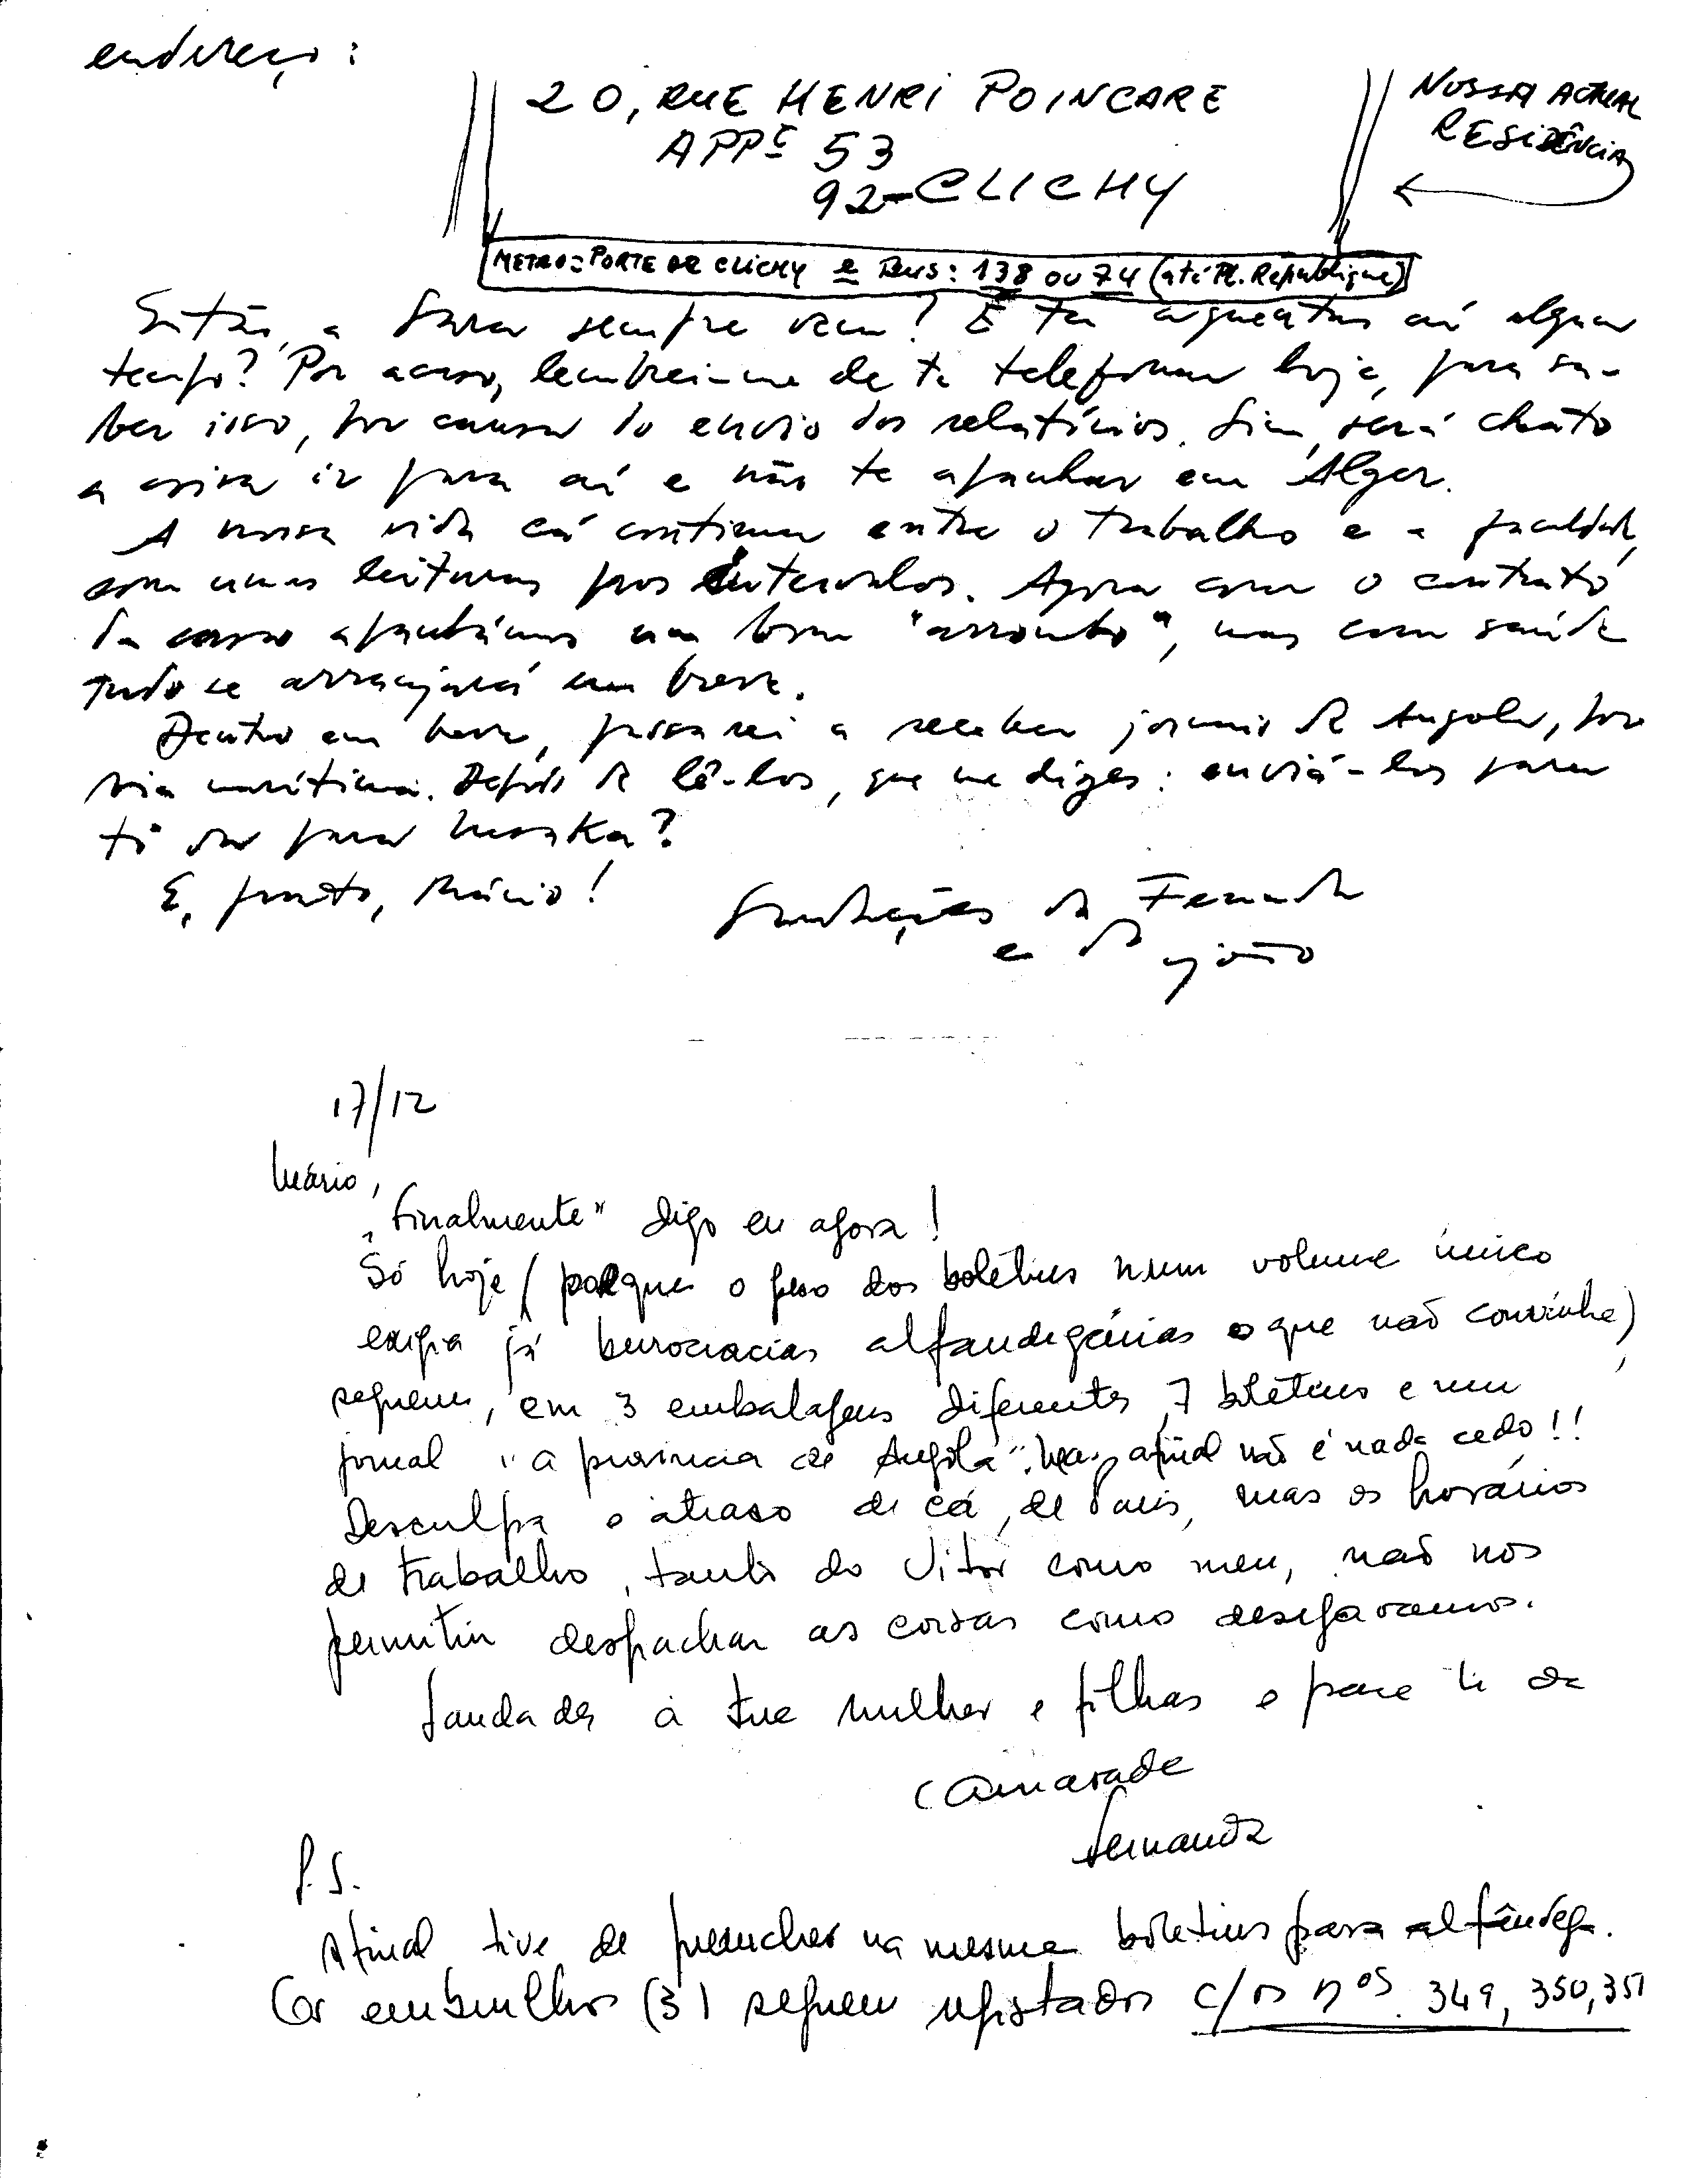 endereço:
20, RUE HENRI POINCARE
APPt 53
92-CLICHY
NOSSA ACTUAL
RESIDÊNCIA
METRO=PORTE DE CLICHY e Bus: 138 ou 74 (até Pl. République)
Então, a Sara sempre vem? E tu aguentas aí algum
tempo? Por acaso, lembrei-me de te telefonar hoje, para sa-
ber isso, por causa do envio dos relatórios. Sim, será chato
a ir para aí e não te apanhar em Alger.
A nossa vida cá continua entre o trabalho e a faculdade,
com umas leituras pros intervalos. Agora com o contrato
da casa apanhámos um bom "arrombo", mas com saúde
tudo se arranjará em breve.
Dentro em breve, passarei a receber jornais de Angola, por
via marítima. Depois de lê-los, que me dizes: enviá-los para
ti ou para Lusaka?
E, pronto, Mário!
Saudações da Fernanda
e do João
17/12
Mário,
"Finalmente" digo eu agora!
Só hoje (porque o peso dos boletins num volume único
exigia já burocracias alfandegárias o que não convinha)
seguem, em 3 embalagens diferentes, 7 boletins e um
jornal "a provincia de Angola". Mas, afinal não é nada cedo!!
Desculpa o atraso de cá, de Paris, mas os horários
de trabalho, tanto do Vitor como meu, não nos
permitem despachar as coisas como desejaramos.
Saudades à tua mulher e filhas e para ti da
Camarada
Fernanda
P.S.
Afinal tive de preencher na mesma boletins para alfândega.
Os embrulhos (3) seguem registados c/os nos. 349, 350, 351